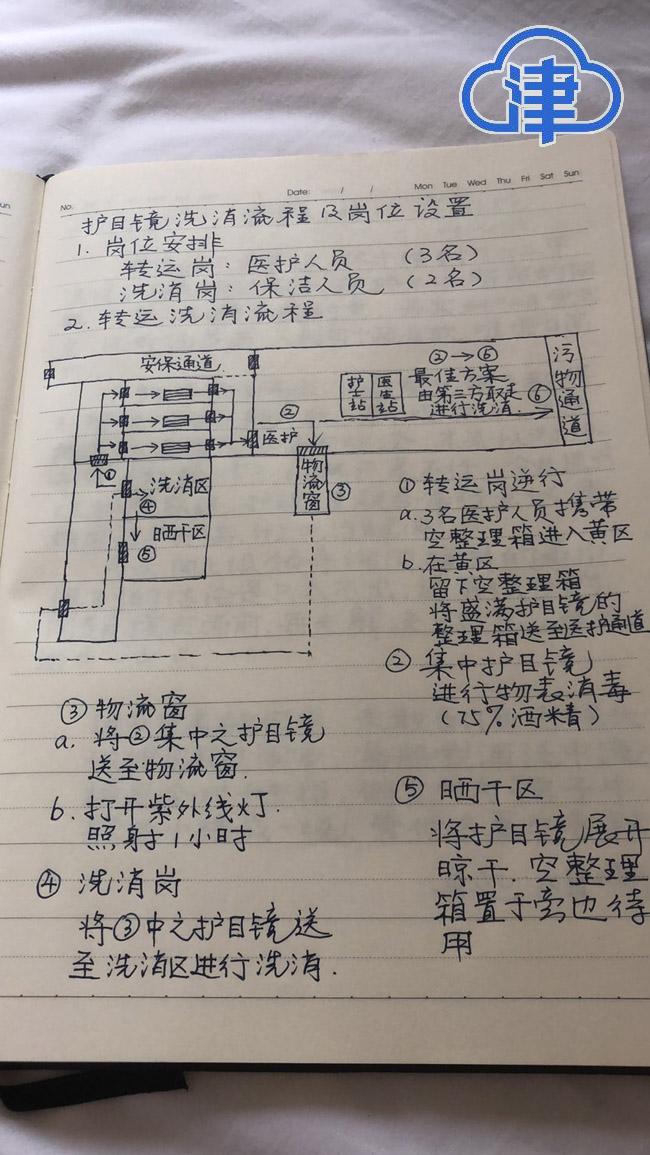 津
un
No.
Date: / /
Mon Tue Wed Thu Fri Sat Sun
护目镜洗消流程及岗位设置
1. 岗位安排
转运岗：医护人员 （3名）
洗消岗：保洁人员 （2名）
2. 转运洗消流程
安保通道
② → ⑥
最佳方案
由第三方取走
进行洗消.
护士站
医生站
⑥
污物通道
②
医护
物流窗
③
①
洗消区
④
晒干区
⑤
① 转运岗逆行
a. 3名医护人员携带
空整理箱进入黄区
b. 在黄区
留下空整理箱
将盛满护目镜的
整理箱送至医护通道
② 集中护目镜
进行物表消毒
（75%酒精）
③ 物流窗
a. 将②集中之护目镜
送至物流窗.
b. 打开紫外线灯.
照射1小时
④ 洗消岗
将③中之护目镜送
至洗消区进行洗消.
⑤ 晒干区
将护目镜展开
晾干. 空整理
箱置于旁边待
用